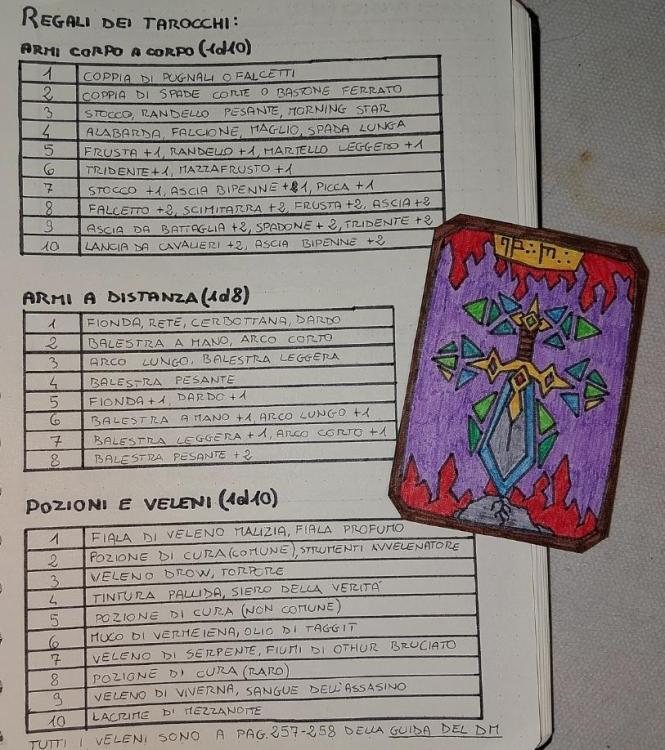 REGALI DEI TAROCCHI:
ARMI CORPO A CORPO (1d10)
1 COPPIA DI PUGNALI O FALCETTI
2 COPPIA DI SPADE CORTE O BASTONE FERRATO
3 STOCCO, RANDELLO PESANTE, MORNING STAR
4 ALABARDA, FALCIONE, MAGLIO, SPADA LUNGA
5 FRUSTA +1, RANDELLO +1, MARTELLO LEGGERO +1
6 TRIDENTE +1, MAZZAFRUSTO +1
7 STOCCO +1, ASCIA BIPENNE +1, PICCA +1
8 FALCETTO +2, SCIMITARRA +2, FRUSTA +2, ASCIA +2
9 ASCIA DA BATTAGLIA +2, SPADONE +2, TRIDENTE +2
10 LANCIA DA CAVALIERI +2, ASCIA BIPENNE +2
ARMI A DISTANZA (1d8)
1 FIONDA, RETE, CERBOTTANA, DARDO
2 BALESTRA A MANO, ARCO CORTO
3 ARCO LUNGO, BALESTRA LEGGERA
4 BALESTRA PESANTE
5 FIONDA +1, DARDO +1
6 BALESTRA A MANO +1, ARCO LUNGO +1
7 BALESTRA LEGGERA +1, ARCO CORTO +1
8 BALESTRA PESANTE +2
POZIONI E VELENI (1d10)
1 FIALA DI VELENO MALIZIA, FIALA PROFUMO
2 POZIONE DI CURA (COMUNE), STRUMENTI AVVELENATORE
3 VELENO DROW, TORPORE
4 TINTURA PALLIDA, SIERO DELLA VERITÀ
5 POZIONE DI CURA (NON COMUNE)
6 MUCO DI VERMEIENA, OLIO DI TAGGIT
7 VELENO DI SERPENTE, FIUMI DI OTHUR BRUCIATO
8 POZIONE DI CURA (RARO)
9 VELENO DI VIVERNA, SANGUE DELL'ASSASINO
10 LACRIME DI MEZZANOTTE
TUTTI I VELENI SONO A PAG. 257-258 DELLA GUIDA DEL DM